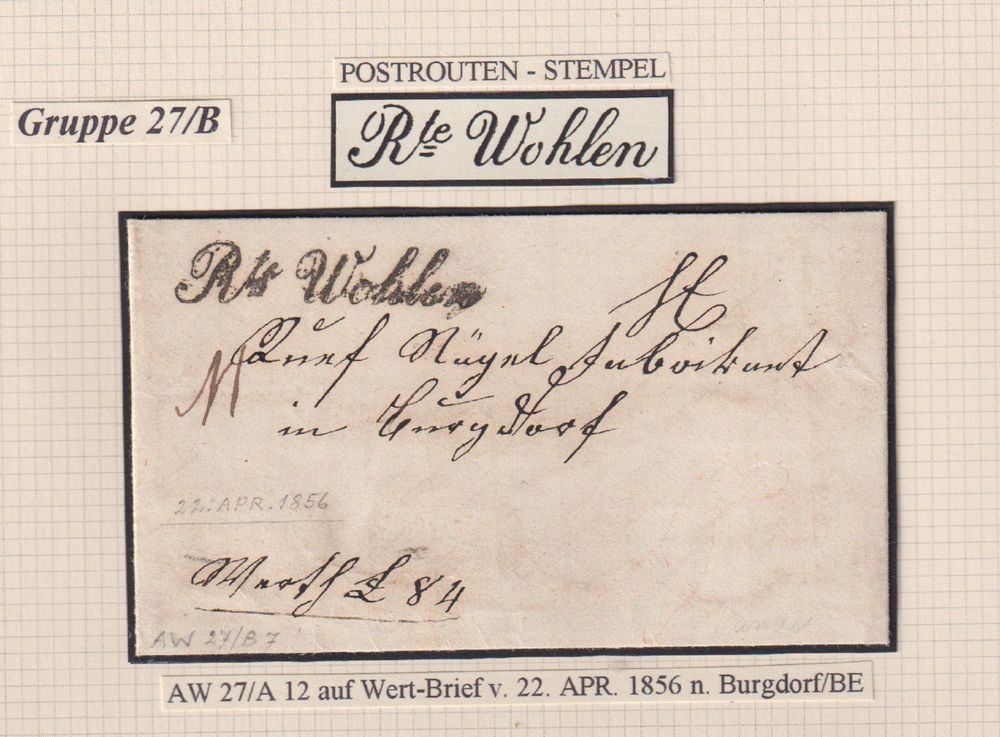 POSTROUTEN - STEMPEL
Gruppe 27/B
Rte Wohlen
Rte Wohlen
Nägel Fabrikant
in Burgdorf
22. APR. 1856
Werth £ 84
AW 27/B 7
AW 27/A 12 auf Wert-Brief v. 22. APR. 1856 n. Burgdorf/BE